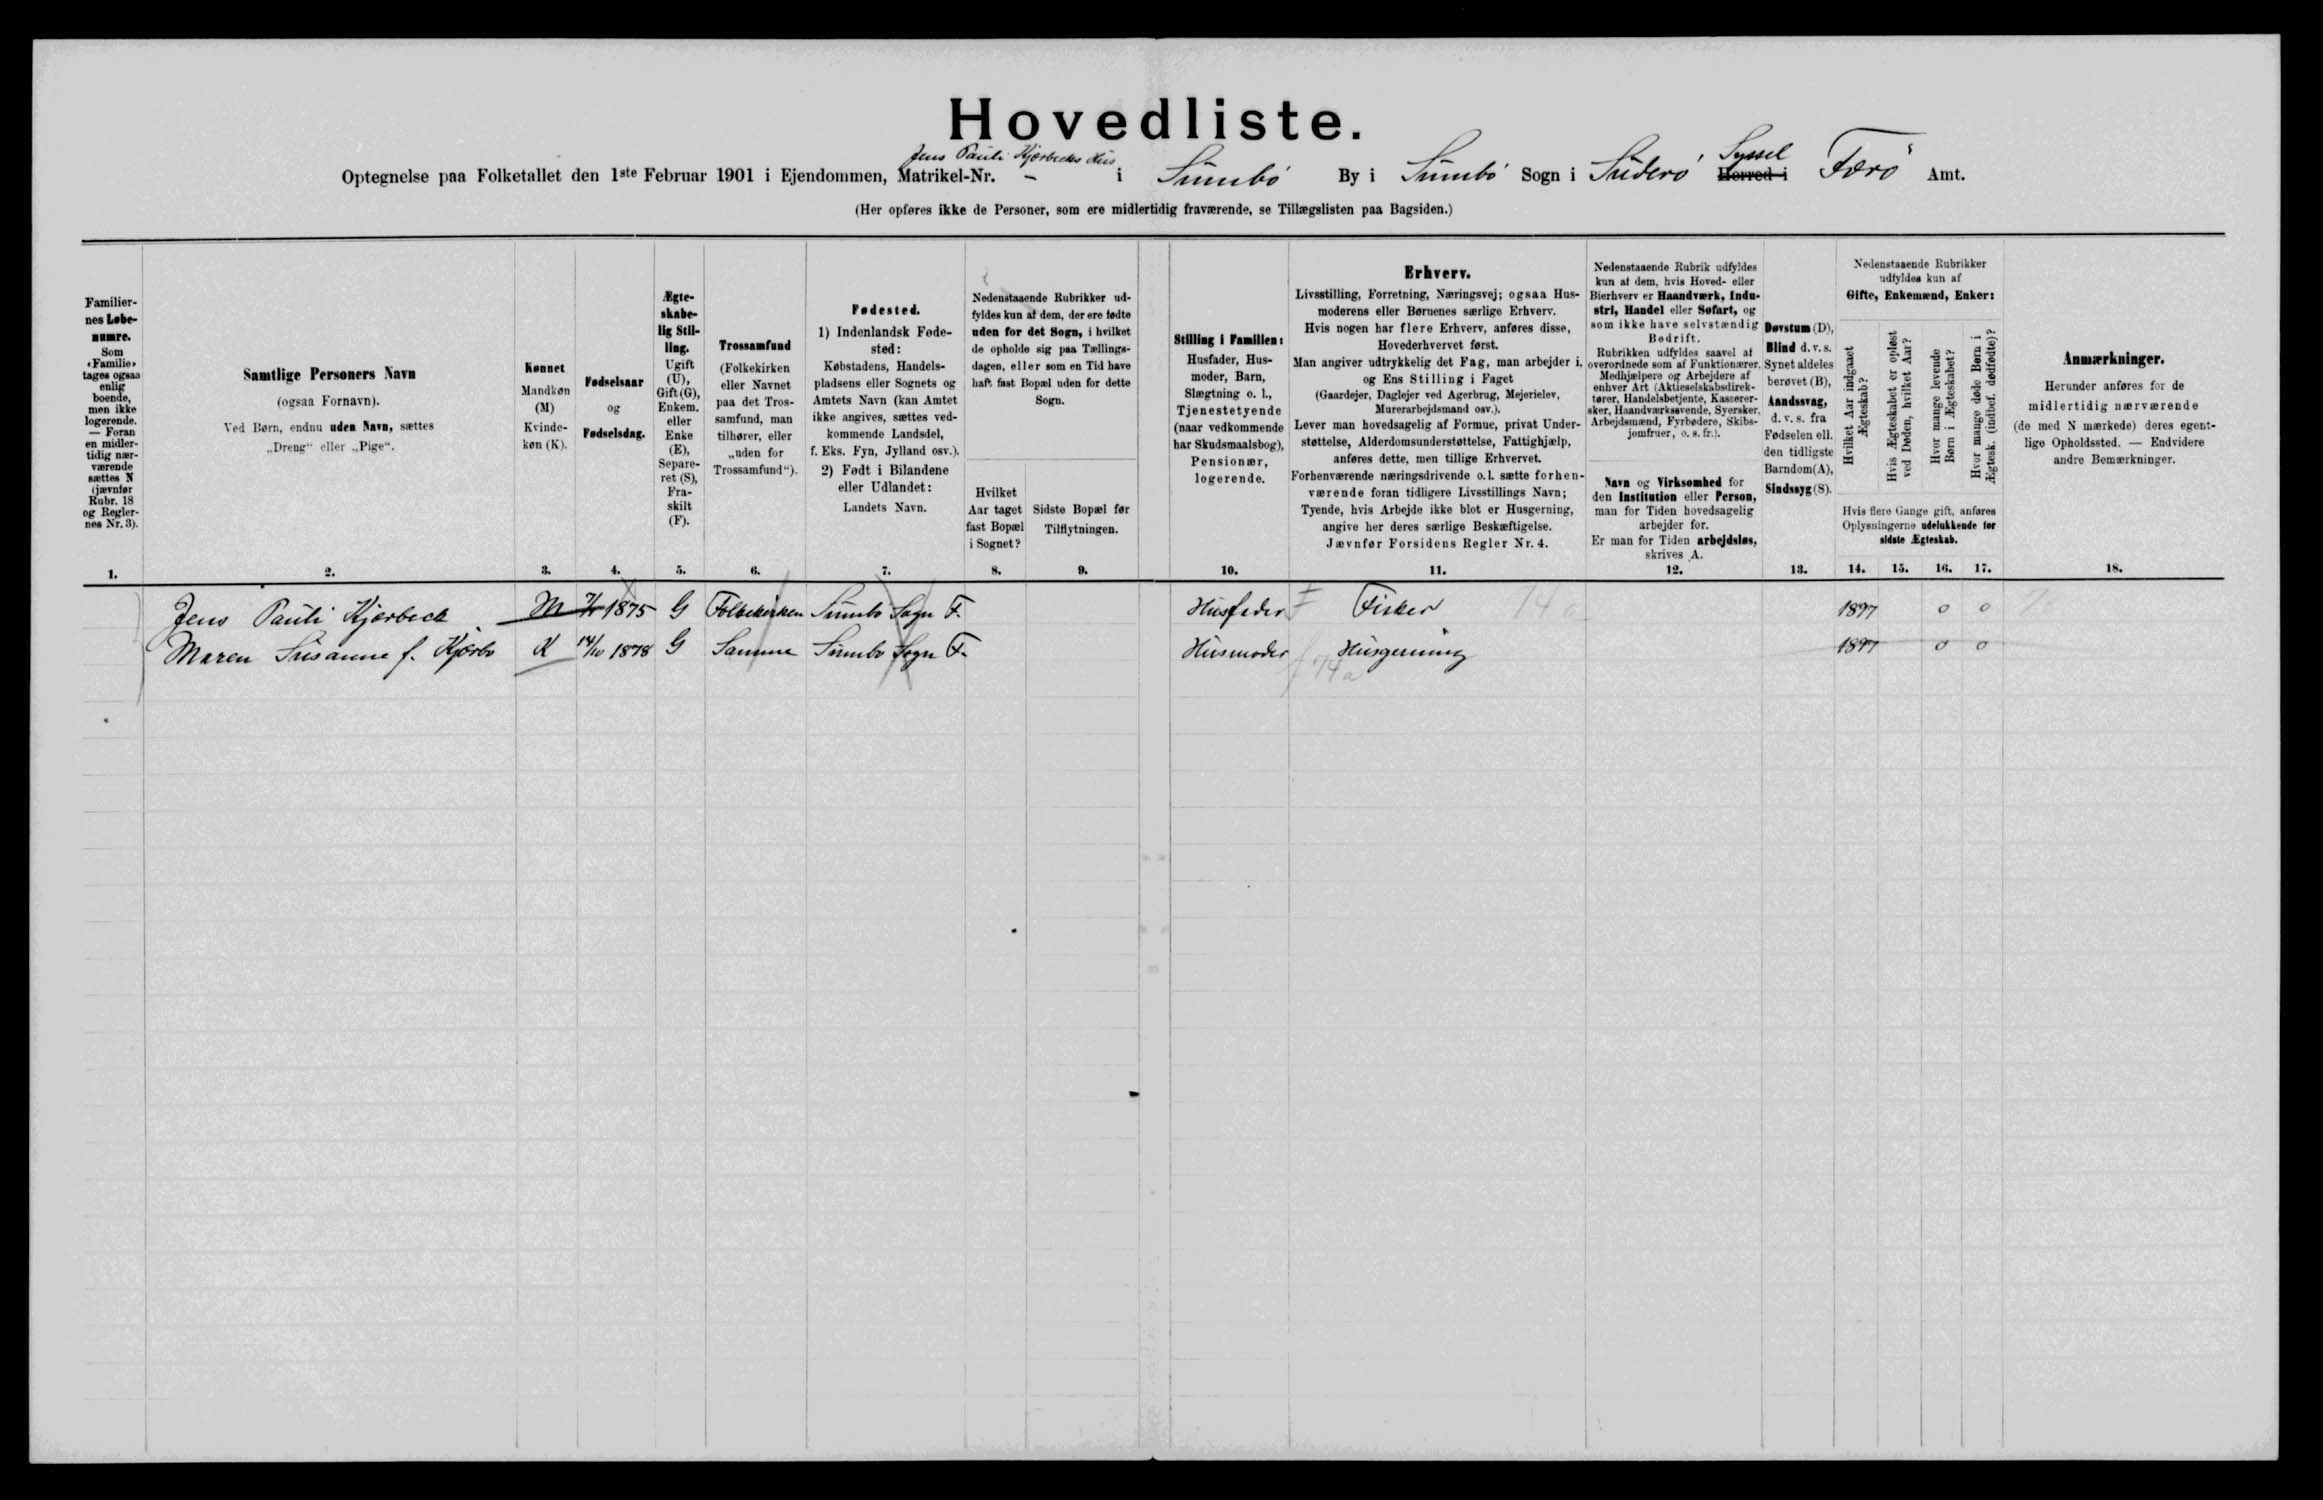 Hovedliste.
Jens Pauli Kjærbecks Hus
Syssel
Optegnelse paa Folketallet den 1ste Februar 1901 i Ejendommen, Matrikel-Nr. – i Sumbö By i Sumbö Sogn i Suderö Herred i Færö Amt.
(Her opføres ikke de Personer, som ere midlertidig fraværende, se Tillægslisten paa Bagsiden.)
Familier-
nes Løbe-
numre.
Som
«Familie»
tages ogsaa
enlig
boende,
men ikke
logerende.
— Foran
en midler-
tidig nær-
værende
sættes N
(jævnfør
Rubr. 18
og Regler-
nes Nr. 3).
1.
Samtlige Personers Navn
(ogsaa Fornavn).
Ved Børn, endnu uden Navn, sættes
„Dreng“ eller „Pige“.
2.
Kønnet
Mandkøn
(M)
Kvinde-
køn (K).
3.
Fødselsaar
og
Fødselsdag.
4.
Ægte-
skabe-
lig Stil-
ling.
Ugift
(U),
Gift (G),
Enkem.
eller
Enke
(E),
Separe-
ret (S),
Fra-
skilt
(F).
5.
Trossamfund
(Folkekirken
eller Navnet
paa det Tros-
samfund, man
tilhører, eller
„uden for
Trossamfund“).
6.
Fødested.
1) Indenlandsk Føde-
sted:
Købstadens, Handels-
pladsens eller Sognets og
Amtets Navn (kan Amtet
ikke angives, sættes ved-
kommende Landsdel,
f. Eks. Fyn, Jylland osv.).
2) Født i Bilandene
eller Udlandet:
Landets Navn.
7.
Nedenstaaende Rubrikker ud-
fyldes kun af dem, der ere fødte
uden for det Sogn, i hvilket
de opholde sig paa Tællings-
dagen, eller som en Tid have
haft fast Bopæl uden for dette
Sogn.
Hvilket
Aar taget
fast Bopæl
i Sognet?
8.
Sidste Bopæl før
Tilflytningen.
9.
Stilling i Familien:
Husfader, Hus-
moder, Barn,
Slægtning o. l.,
Tjenestetyende
(naar vedkommende
har Skudsmaalsbog),
Pensionær,
logerende.
10.
Erhverv.
Livsstilling, Forretning, Næringsvej; ogsaa Hus-
moderens eller Børnenes særlige Erhverv.
Hvis nogen har flere Erhverv, anføres disse,
Hovederhvervet først.
Man angiver udtrykkelig det Fag, man arbejder i,
og Ens Stilling i Faget
(Gaardejer, Daglejer ved Agerbrug, Mejerielev,
Murerarbejdsmand osv.).
Lever man hovedsagelig af Formue, privat Under-
støttelse, Alderdomsunderstøttelse, Fattighjælp,
anføres dette, men tillige Erhvervet.
Forhenværende næringsdrivende o. l. sætte forhen-
værende foran tidligere Livsstillings Navn;
Tyende, hvis Arbejde ikke blot er Husgerning,
angive her deres særlige Beskæftigelse.
Jævnfør Forsidens Regler Nr. 4.
11.
Nedenstaaende Rubrik udfyldes
kun af dem, hvis Hoved- eller
Bierhverv er Haandværk, Indu-
stri, Handel eller Søfart, og
som ikke have selvstændig
Bedrift.
Rubrikken udfyldes saavel af
overordnede som af Funktionærer,
Medhjælpere og Arbejdere af
enhver Art (Aktieselskabsdirek-
tører, Handelsbetjente, Kasserer-
sker, Haandværkssvende, Syersker,
Arbejdsmænd, Fyrbødere, Skibs-
jomfruer, o. s. fr.).
Navn og Virksomhed for
den Institution eller Person,
man for Tiden hovedsagelig
arbejder for.
Er man for Tiden arbejdsløs,
skrives A.
12.
Døvstum (D),
Blind d. v. s.
Synet aldeles
berøvet (B),
Aandssvag,
d. v. s. fra
Fødselen ell.
den tidligste
Barndom (A),
Sindssyg (S).
13.
Nedenstaaende Rubrikker
udfyldes kun af
Gifte, Enkemænd, Enker:
Hvilket Aar indgaaet
Ægteskab?
Hvis Ægteskabet er opløst
ved Døden, hvilket Aar?
Hvor mange levende
Børn i Ægteskabet?
Hvor mange døde Børn i
Ægtesk. (indbef. dødfødte)?
Hvis flere Gange gift, anføres
Oplysningerne udelukkende for
sidste Ægteskab.
14. 15. 16. 17.
Anmærkninger.
Herunder anføres for de
midlertidig nærværende
(de med N mærkede) deres egent-
lige Opholdssted. — Endvidere
andre Bemærkninger.
18.
Jens Pauli Kjærbeck M 1875 G Folkekirken Sumbo Sogn F. Husfader Fisker 1897 0 0
Maren Susanne f. Kjærbo K 14/10 1878 G Samme Sumbo Sogn F. Husmoder Husgerning 1897 0 0
74 a